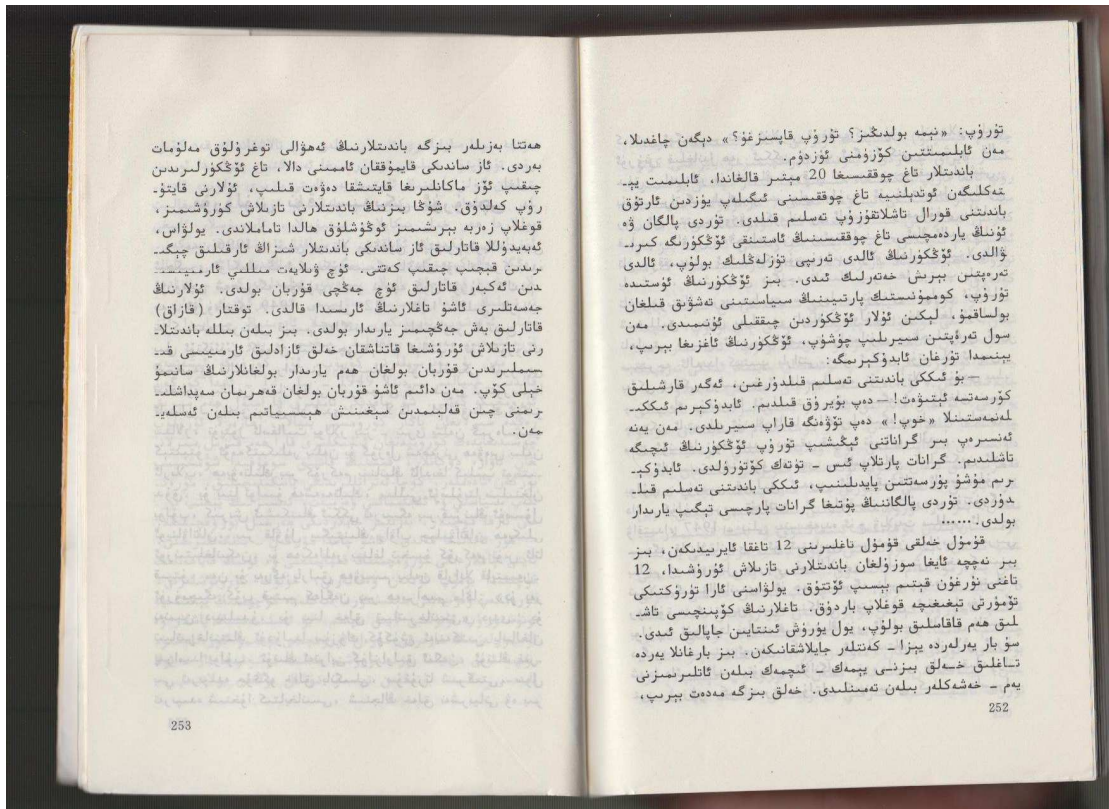 تۇرۇپ: «نېمە بولدىڭىز؟ تۇرۇپ قاپسىزغۇ؟» دېگەن چاغدىلا،
مەن ئابلىمىتتىن كۆزۈمنى ئۈزدۈم.
باندىتلار تاغ چوققىسىغا 20 مېتىر قالغاندا، ئابلىمىت يې-
تەكلىگەن ئوتدېلىنىيە تاغ چوققىسىنى ئىگىلەپ يۈزدىن ئارتۇق
باندىتنى قورال تاشلاتقۇزۇپ تەسلىم قىلدى. تۇردى پالگان ۋە
ئۇنىڭ ياردەمچىسى تاغ چوققىسىنىڭ ئاستىنقى ئۆڭكۈرىگە كىرى-
ۋالدى. ئۆڭكۈرنىڭ ئالدى تەرىپى تۈزلەڭلىك بولۇپ، ئالدى
تەرەپتىن بېرىش خەتەرلىك ئىدى. بىز ئۆڭكۈرنىڭ ئۈستىدە
تۇرۇپ، كوممۇنىستىك پارتىيىنىڭ سىياسىتىنى تەشۋىق قىلغان
بولساقمۇ، لېكىن ئۇلار ئۆڭكۈردىن چىققىلى ئۇنىمىدى. مەن
سول تەرەپتىن سىيرىلىپ چۈشۈپ، ئۆڭكۈرنىڭ ئاغزىغا بېرىپ،
يېنىمدا تۇرغان ئابدۇكېرىمگە:
— بۇ ئىككى باندىتنى تەسلىم قىلدۇرغىن، ئەگەر قارشىلىق
كۆرسەتسە ئېتىۋەت! — دەپ بۇيرۇق قىلدىم. ئابدۇكېرىم ئىككى-
لەنمەستىنلا «خوپ!» دەپ تۆۋەنگە قاراپ سىيرىلدى. مەن يەنە
ئەنسىرەپ بىر گراناتنى ئېڭىشىپ تۇرۇپ ئۆڭكۈرنىڭ ئىچىگە
تاشلىدىم. گرانات پارتلاپ ئىس - تۈتەك كۆتۈرۈلدى. ئابدۇكې-
رىم مۇشۇ پۇرسەتتىن پايدىلىنىپ، ئىككى باندىتنى تەسلىم قىل-
دۇردى. تۇردى پالگاننىڭ پۇتىغا گرانات پارچىسى تېگىپ يارىدار
بولدى.......
قۇمۇل خەلقى قۇمۇل تاغلىرىنى 12 تاغقا ئايرىيدىكەن، بىز
بىر نەچچە ئايغا سوزۇلغان باندىتلارنى تازىلاش ئۇرۇشىدا، 12
تاغنى نۇرغۇن قېتىم بېسىپ ئۆتتۇق. يولۋاسنى ئارا تۈرۈكتىكى
تۆمۈرتى تېغىغىچە قوغلاپ باردۇق. تاغلارنىڭ كۆپىنچىسى تاش-
لىق ھەم قاقاسلىق بولۇپ، يول يۈرۈش ئىنتايىن جاپالىق ئىدى.
سۇ بار يەرلەردە يېزا - كەنتلەر جايلاشقانىكەن. بىز بارغانلا يەردە
تاغلىق خەلق بىزنى يېمەك - ئىچمەك بىلەن ئاتلىرىمىزنى
يەم - خەشەكلەر بىلەن تەمىنلىدى. خەلق بىزگە مەدەت بېرىپ،
252
ھەتتا بەزىلەر بىزگە باندىتلارنىڭ ئەھۋالى توغرۇلۇق مەلۇمات
بەردى. ئاز ساندىكى قايمۇققان ئاممىنى دالا، تاغ ئۆڭكۈرلىرىدىن
چىقىپ ئۆز ماكانلىرىغا قايتىشقا دەۋەت قىلىپ، ئۇلارنى قايتۇ-
رۇپ كەلدۇق. شۇڭا بىزنىڭ باندىتلارنى تازىلاش كۈرۈشىمىز،
قوغلاپ زەربە بېرىشىمىز ئوڭۇشلۇق ھالدا تاماملاندى. يولۋاس،
ئەبەيدۇللا قاتارلىق ئاز ساندىكى باندىتلار شىزاڭ ئارقىلىق چېگى-
رىدىن قېچىپ چىقىپ كەتتى. ئۈچ ۋىلايەت مىللىي ئارمىيىسى-
دىن ئەكبەر قاتارلىق ئۈچ جەڭچى قۇربان بولدى. ئۇلارنىڭ
جەسەتلىرى ئاشۇ تاغلارنىڭ ئارىسىدا قالدى. توقتار (قازاق)
قاتارلىق بەش جەڭچىمىز يارىدار بولدى. بىز بىلەن بىللە باندىتلا-
رنى تازىلاش ئۇرۇشىغا قاتناشقان خەلق ئازادلىق ئارمىيىسى قى-
سىملىرىدىن قۇربان بولغان ھەم يارىدار بولغانلارنىڭ سانىمۇ
خېلى كۆپ. مەن دائىم ئاشۇ قۇربان بولغان قەھرىمان سەپداشلى-
رىمنى چىن قەلبىمدىن سېغىنىش ھېسسىياتىم بىلەن ئەسلەي-
مەن.
253